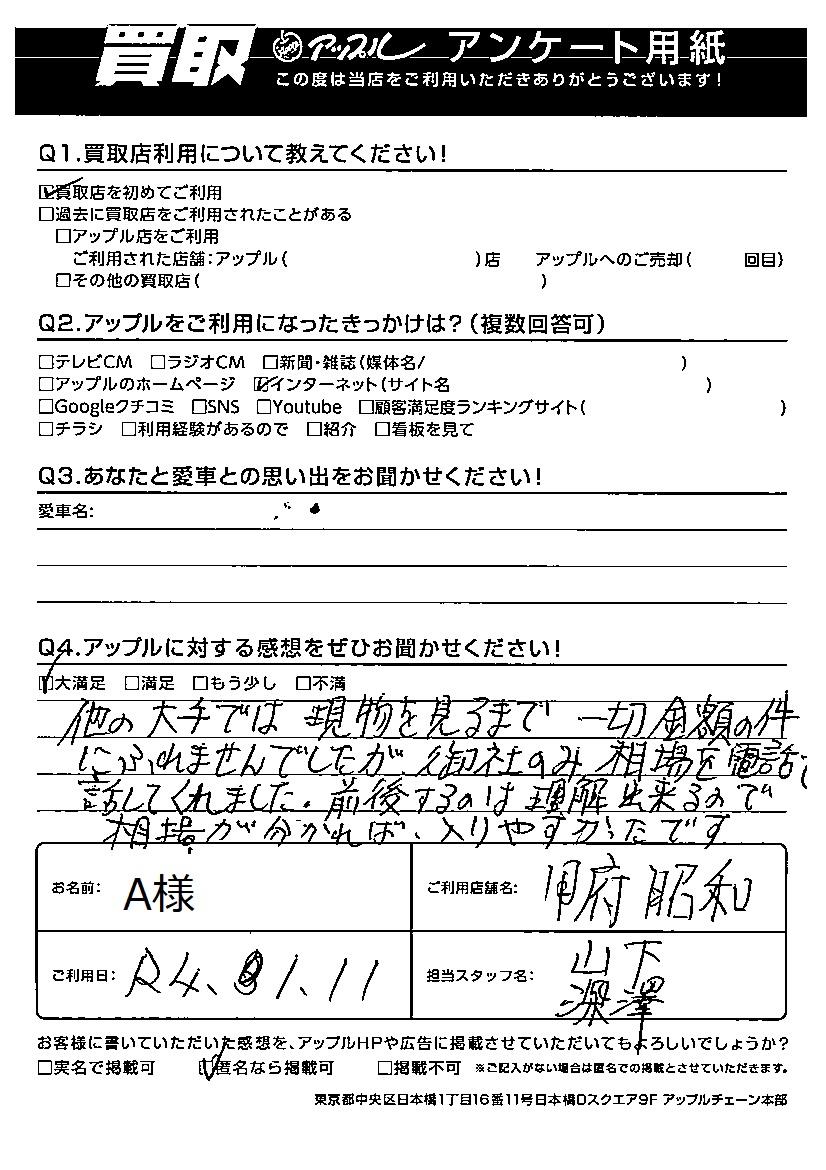 買取 アップル アンケート用紙
この度は当店をご利用いただきありがとうございます!
Q1.買取店利用について教えてください!
☑買取店を初めてご利用
□過去に買取店をご利用されたことがある
□アップル店をご利用
ご利用された店舗:アップル( )店 アップルへのご売却( 回目)
□その他の買取店( )
Q2.アップルをご利用になったきっかけは?(複数回答可)
□テレビCM □ラジオCM □新聞・雑誌(媒体名/ )
□アップルのホームページ ☑インターネット(サイト名 )
□Googleクチコミ □SNS □Youtube □顧客満足度ランキングサイト( )
□チラシ □利用経験があるので □紹介 □看板を見て
Q3.あなたと愛車との思い出をお聞かせください!
愛車名:
Q4.アップルに対する感想をぜひお聞かせください!
☑大満足 □満足 □もう少し □不満
他の大手では現物を見るまで一切金額の件
にふれませんでしたが御社のみ相場を電話で
話してくれました。前後するのは理解出来るので
相場が分かれば、入りやすかったです
お名前: A様 ご利用店舗名: 甲府昭和
ご利用日: R4、 1、11 担当スタッフ名: 山下
深澤
お客様に書いていただいた感想を、アップルHPや広告に掲載させていただいてもよろしいでしょうか?
□実名で掲載可 ☑匿名なら掲載可 □掲載不可 ※ご記入がない場合は匿名での掲載とさせていただきます。
東京都中央区日本橋1丁目16番11号日本橋Dスクエア9F アップルチェーン本部